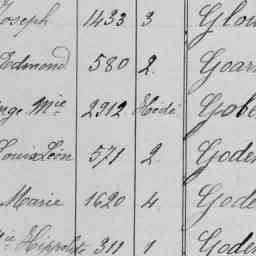 Joseph 1433 3 Glou
Edmond 580 2 Goar
Ange Mie 2912 Hédé Gobe
Louis Léon 571 2 Goder
Marie 1620 4 Gode
Hippolyte 311 1 Goder